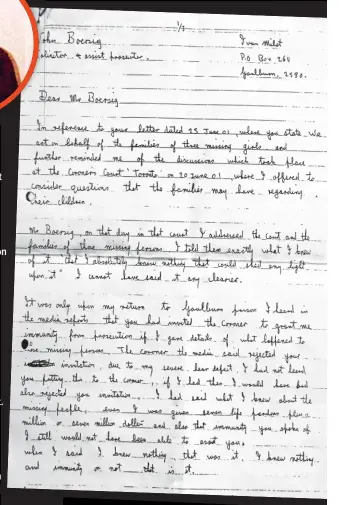 1/3
John Boersig Ivan Milat
solicitor & assist prosecutor. P.O. Box 264
Goulburn, 2580.
Dear Mr Boersig
In reference to your letter dated 25 June 01, where you state, We
act on behalf of the families of three missing girls and
further reminded me of the discussions which took place
at the Coroners Court 'Toronto' on 20 June 01, where I offered to
consider questions that the families may have regarding
their children.
Mr Boersig, on that day in that court I addressed the Court and the
families of three missing persons. I told them exactly what I knew
of it that I absolutely knew nothing that could shed any light
upon it" I cannot have said it any clearer.
It was only upon my return to Goulburn prison I heard in
the media reports that you had invited the Coroner to grant me
immunity from prosecution if I gave details of what happened to
missing persons. The coroner, the media said rejected your
invitation, due to my severe hear defect. I had not heard
you putting this to the coroner, if I had then I would have had
also rejected you invitation. I had said what I knew about the
missing people, even I was given seven life pardons plus a
million or seven million dollars and also that immunity you spoke of
I still would not have been able to assist you.
when I said I knew nothing, that was it. I knew nothing,
and immunity or not that is it.